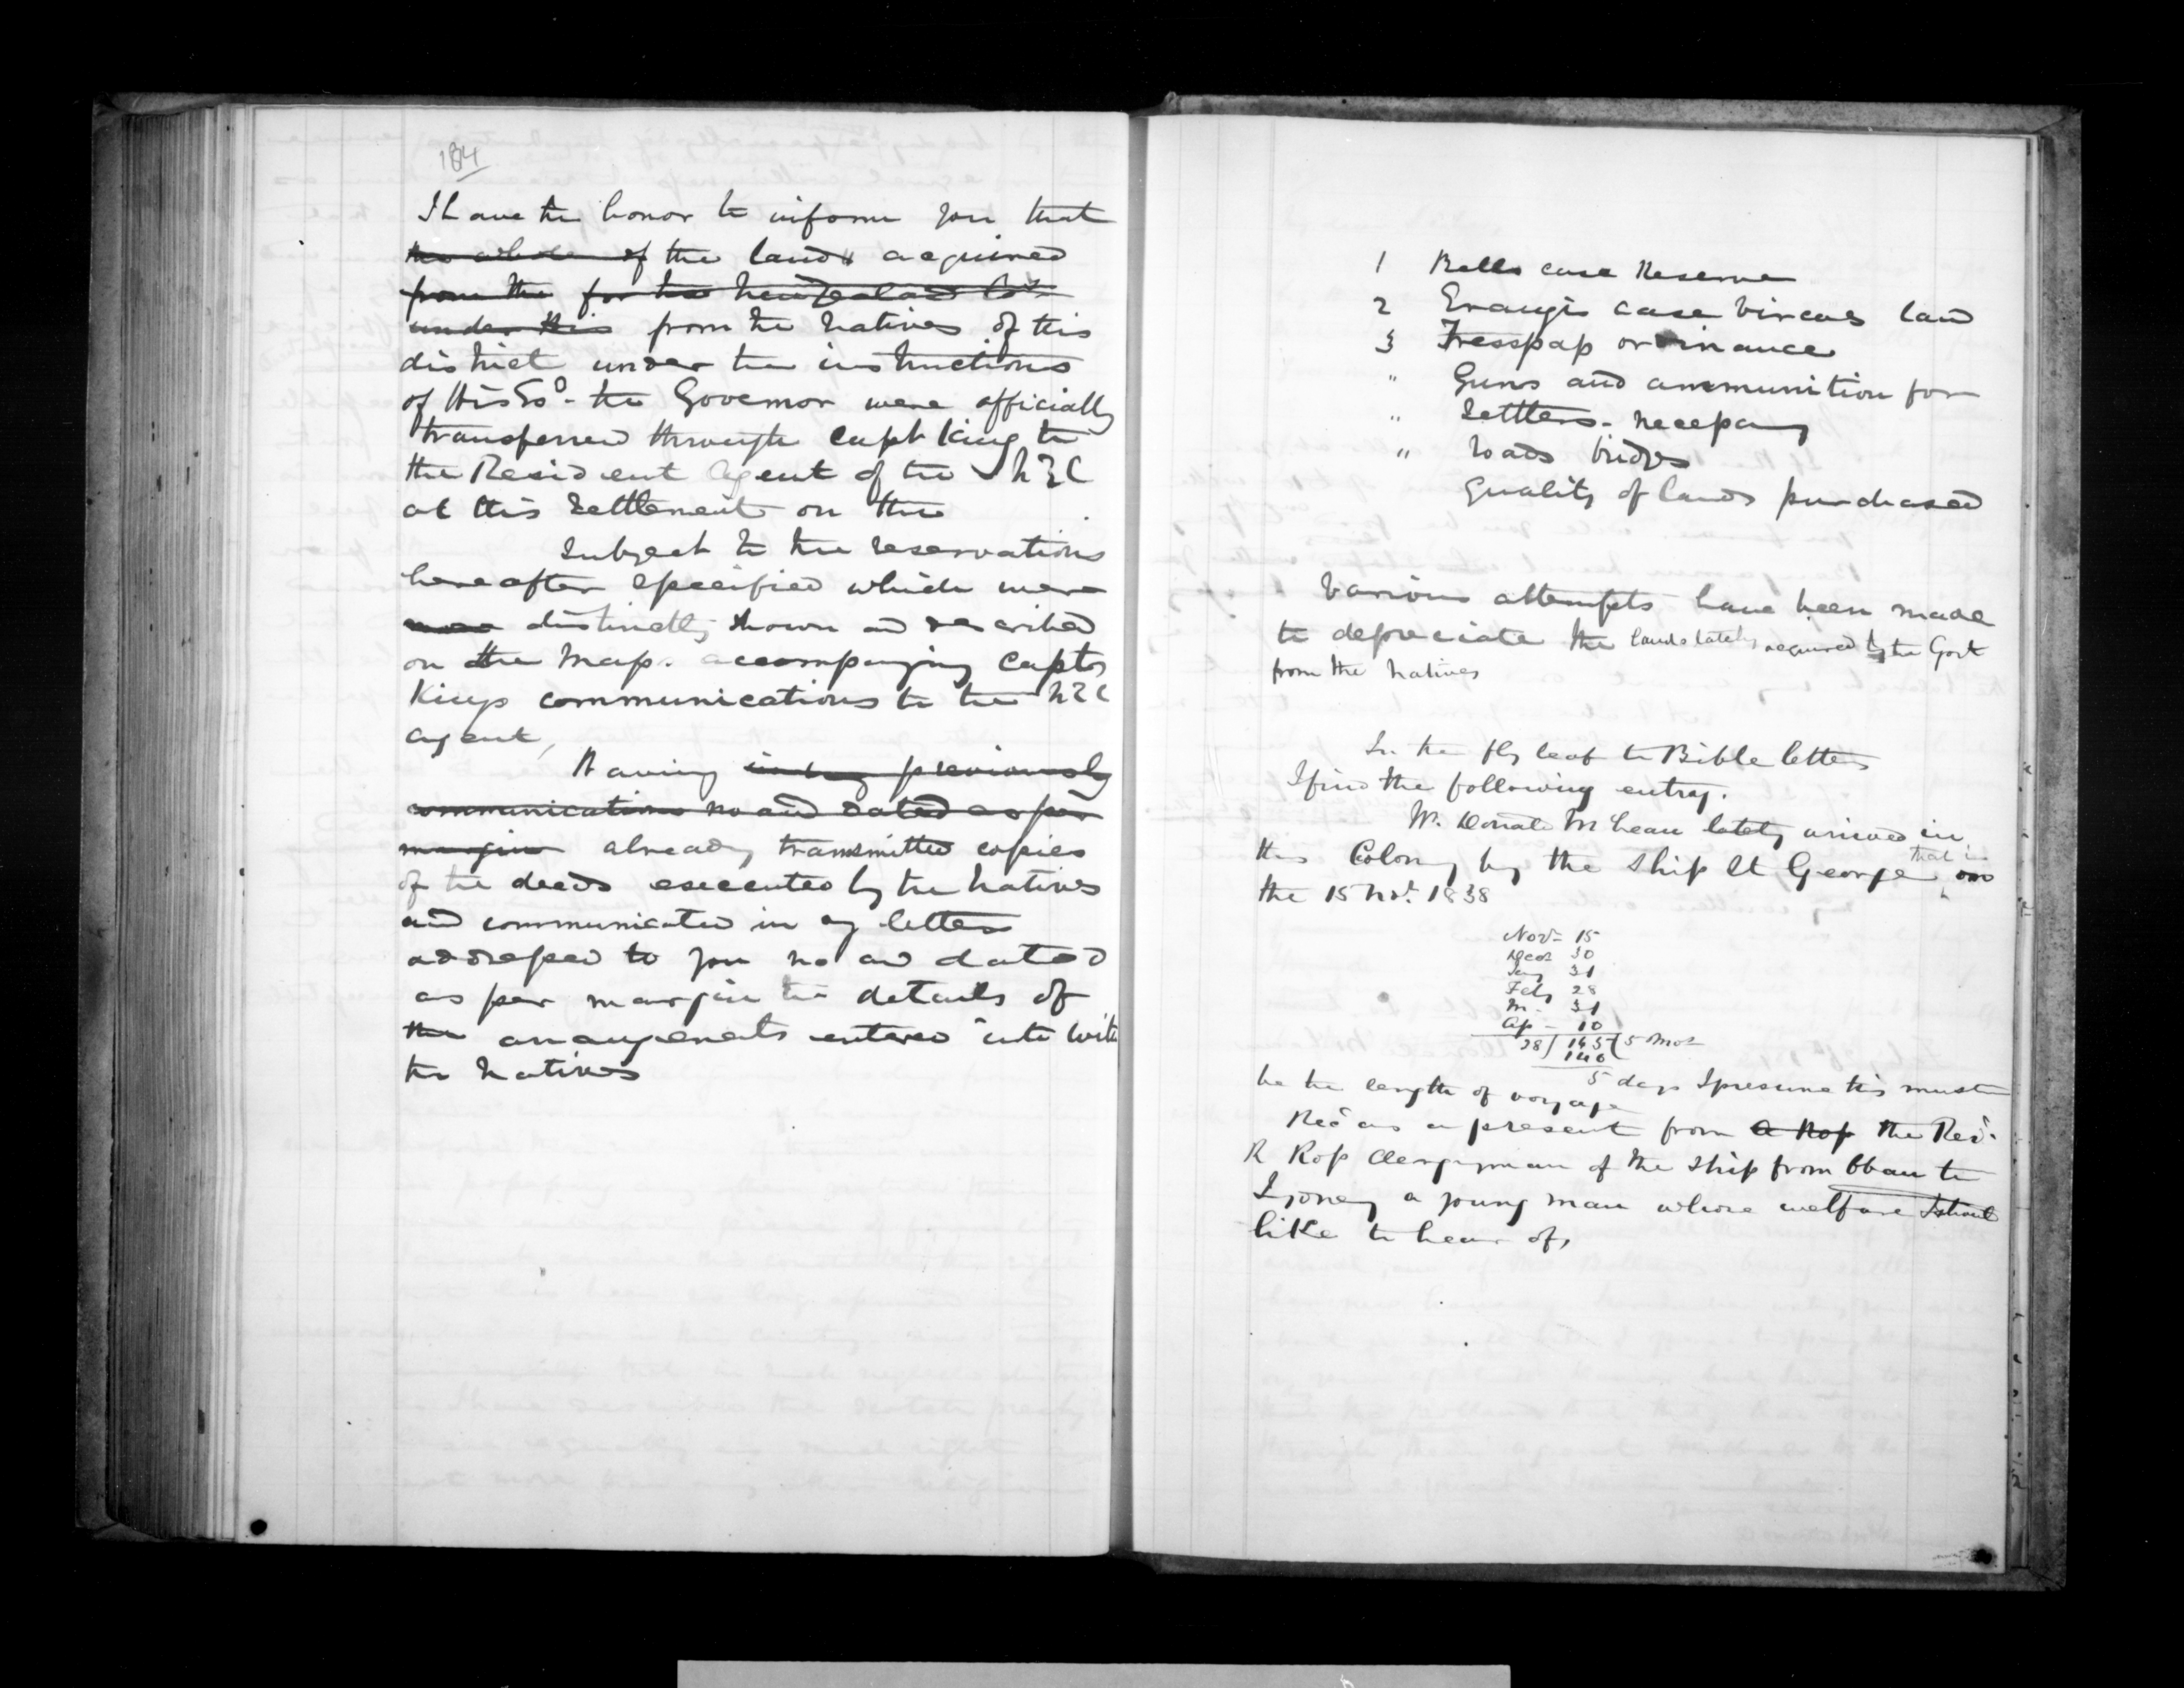 184
I have the honor to inform you that
the whole of the lands acquired
from the for the New Zealand Co.
under this from the Natives of this
district under the instructions
of His Ex. the Governor were officially
transferred through Capt King to
the Resident Agent of the NZC
at this Settlement on the
Subject to the reservations
hereafter specified which were
distinctly shown and described
on the Map. accompanying Captn
Kings communications to the NZC
agent,
Having previously
communications no and dated as per
margin already transmitted copies
of the deeds executed by the Natives
and communicated in my letters
addressed to you no and dated
as per margin the details of
the arrangements entered into with
the Natives
1 Bells case Reserve
2 case land
3 Tresspass ordinance
" Guns and ammunition for
" Settlers - necessary
" Roads bridges
Quality of lands purchased
Various attempts have been made
to depreciate the lands lately acquired by the Govt
from the Natives
In the fly leaf to Bible letters
I find the following entry.
Mr. Donald McLean lately arrived in
this Colony by the Ship St George that is on
the 15 Novr. 1838
Novr 15
Decr 30
Jany 31
Feby 28
M. 31
Ap - 10
28) 145 (5 Mos
140
5 days I presume this must
be the length of voyage
Recd as a present from a Ross the Revd.
R Ross Clergyman of the Ship from Oban to
Sydney a young man whose welfare I should
like to hear of,